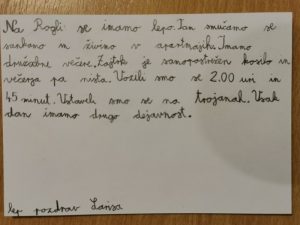 Na Rogli se imamo lepo. Tam smučamo se
sankamo in živimo v apartmajih. Imamo
družabne večere. Zajtrk je samopostrežen kosilo in
večerja pa nista. Vozili smo se 2.00 uri in
45 minut. Ustavili smo se na trojanah. Vsak
dan imamo drugo dejavnost.
lep pozdrav Larisa